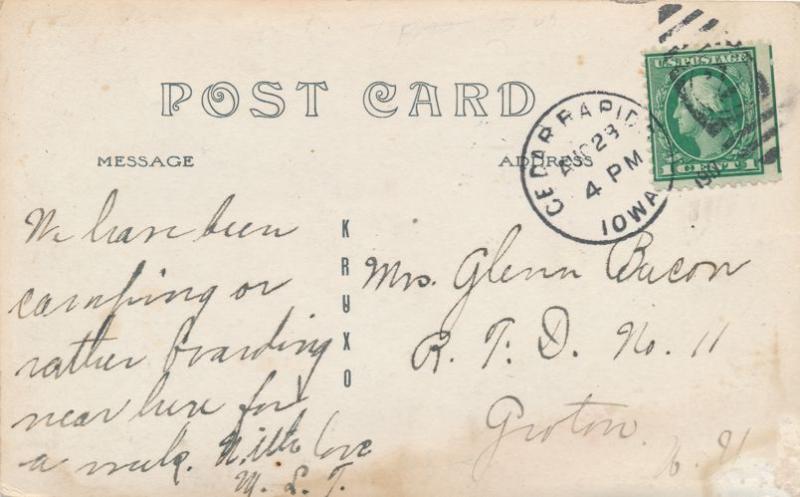 POST CARD
U.S. POSTAGE
1 CENT 1
CEDAR RAPIDS
AUG 28
4 PM
IOWA
MESSAGE
ADDRESS
We have been
camping or
rather boarding
near here for
a week. With love
M. L. T.
KRUXO
Mrs. Glenn Bacon
R. F. D. No. 11
Groton
N. Y.